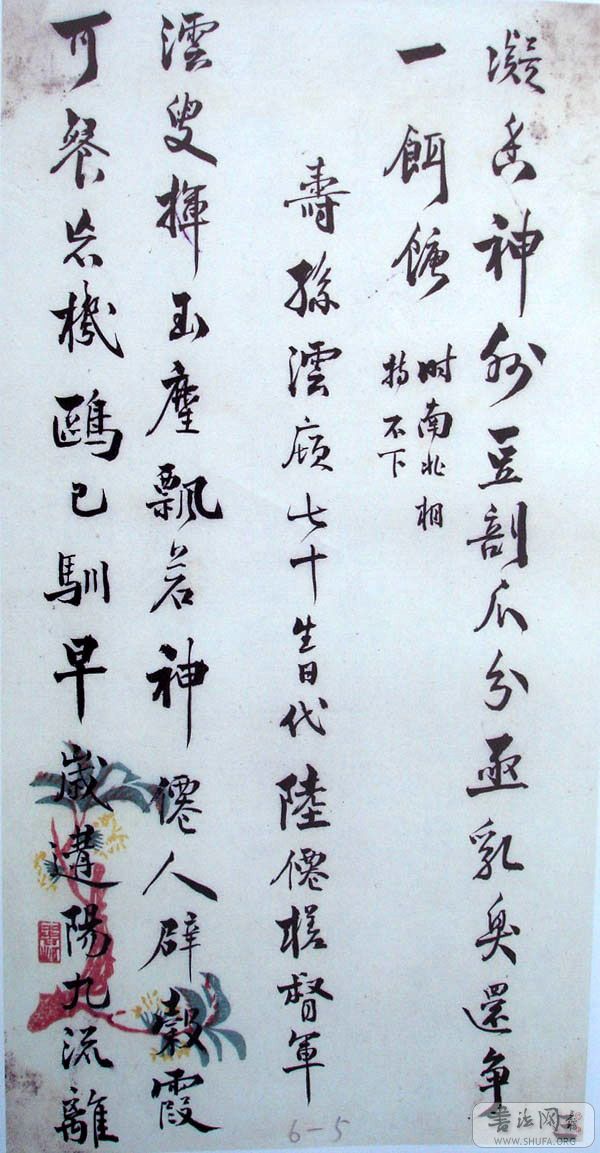 凝神州豆剖瓜分亟乳臭還爭
一餌餹
时南北相
持不下
壽孫澐頎七十生日代陸僊槎督軍
澐叟揮玉麈飄若神僊人辟穀霞
可餐忘機鷗已馴早歲遘陽九流離
6-5
书法网
WWW.SHUFA.ORG